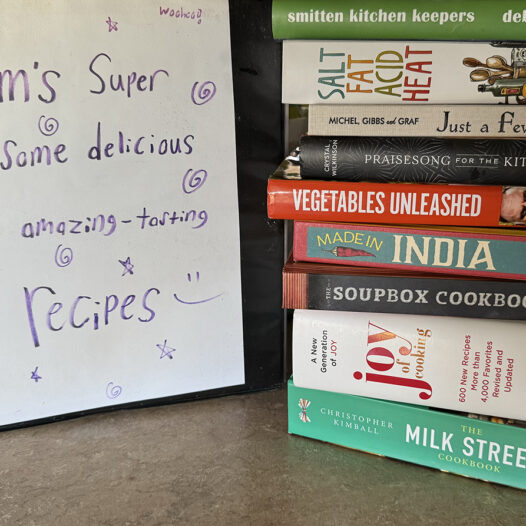 woohoo!
m's Super
some delicious
amazing-tasting
recipes
smitten kitchen keepers
SALT
FAT
ACID
HEAT
MICHEL, GIBBS and GRAF Just a Few
CRYSTAL
WILKINSON
PRAISESONG FOR THE KIT
VEGETABLES UNLEASHED
MADE IN INDIA
THE SOUPBOX COOKBOO
A New
Generation
of JOY
joy
of
cooking
600 New Recipes
More than
4,000 Favorites
Revised and
Updated
CHRISTOPHER
KIMBALL
THE
MILK STREE
COOKBOOK